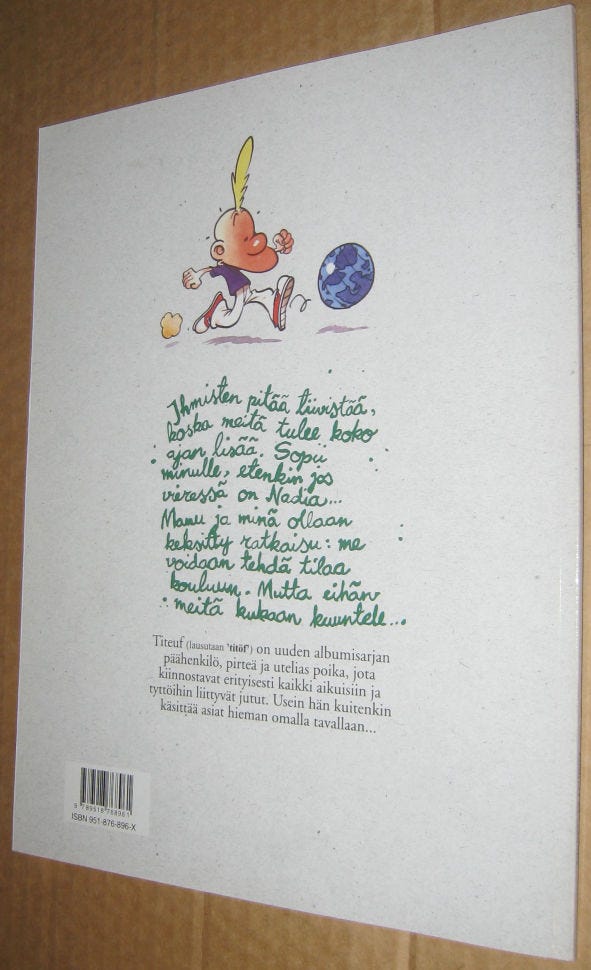 Ihmisten pitää tiivistää,
koska meitä tulee koko
ajan lisää. Sopii
minulle, etenkin jos
vieressä on Nadia...
Manu ja minä ollaan
keksitty ratkaisu: me
voidaan tehdä tilaa
kouluun. Mutta eihän
meitä kukaan kuuntele...
Titeuf (lausutaan 'titöf') on uuden albumisarjan
päähenkilö, pirteä ja utelias poika, jota
kiinnostavat erityisesti kaikki aikuisiin ja
tyttöihin liittyvät jutut. Usein hän kuitenkin
käsittää asiat hieman omalla tavallaan...
9 789518 768961
ISBN 951-876-896-X